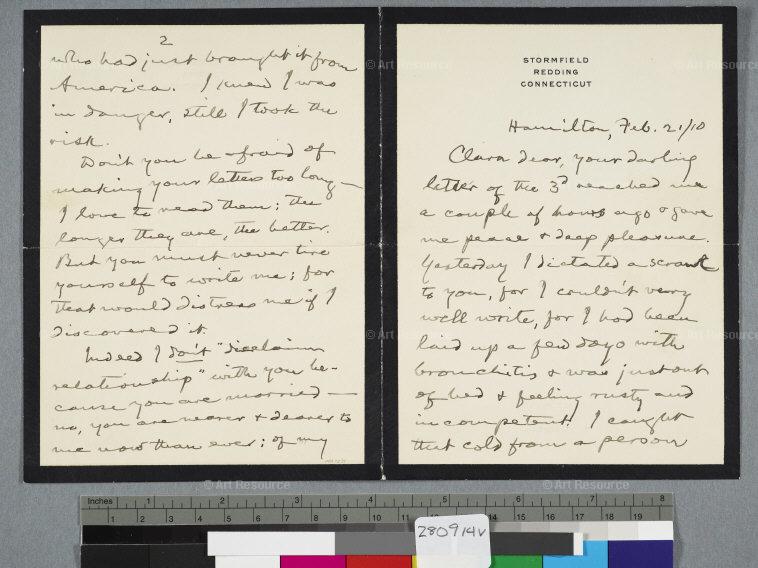 STORMFIELD
REDDING
CONNECTICUT
Hamilton, Feb. 21/10
Clara dear, your darling
letter of the 3d reached me
a couple of hours ago & gave
me peace & deep pleasure.
Yesterday I dictated a scrawl
to you, for I couldn't very
well write, for I had been
laid up a few days with
bronchitis & was just out
of bed & feeling rusty and
incompetent. I caught
that cold from a person
2
who had just brought it from
America. I knew I was
in danger, still I took the
risk.
Don't you be afraid of
making your letters too long—
I love to read them; the
longer they are, the better.
But you must never tire
yourself to write me; for
that would distress me if I
discovered it.
Indeed I don't "disclaim
relationship" with you be-
cause you are married—
no, you are nearer & dearer to
me now than ever; of my
© Art Resource
© Art Resource
© Art Resource
© Art Resource
© Art Resource
© Art Resource
Inches 1 2 3 4 5 6 7 8
1 2 3 4 5 6 7 8 9 10 11 12 13 14 15 16 17 18 19
280914v